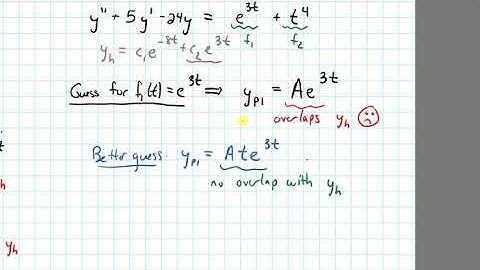 y'' + 5y' - 24y = e^{3t} + t^4
f_1 f_2
y_h = c_1e^{-8t} + c_2e^{3t}
Guess for f_1(t) = e^{3t} ⟹ y_{p1} = Ae^{3t}
overlaps y_h ☹
Better guess: y_{p1} = Ate^{3t}
no overlap with y_h
y_h